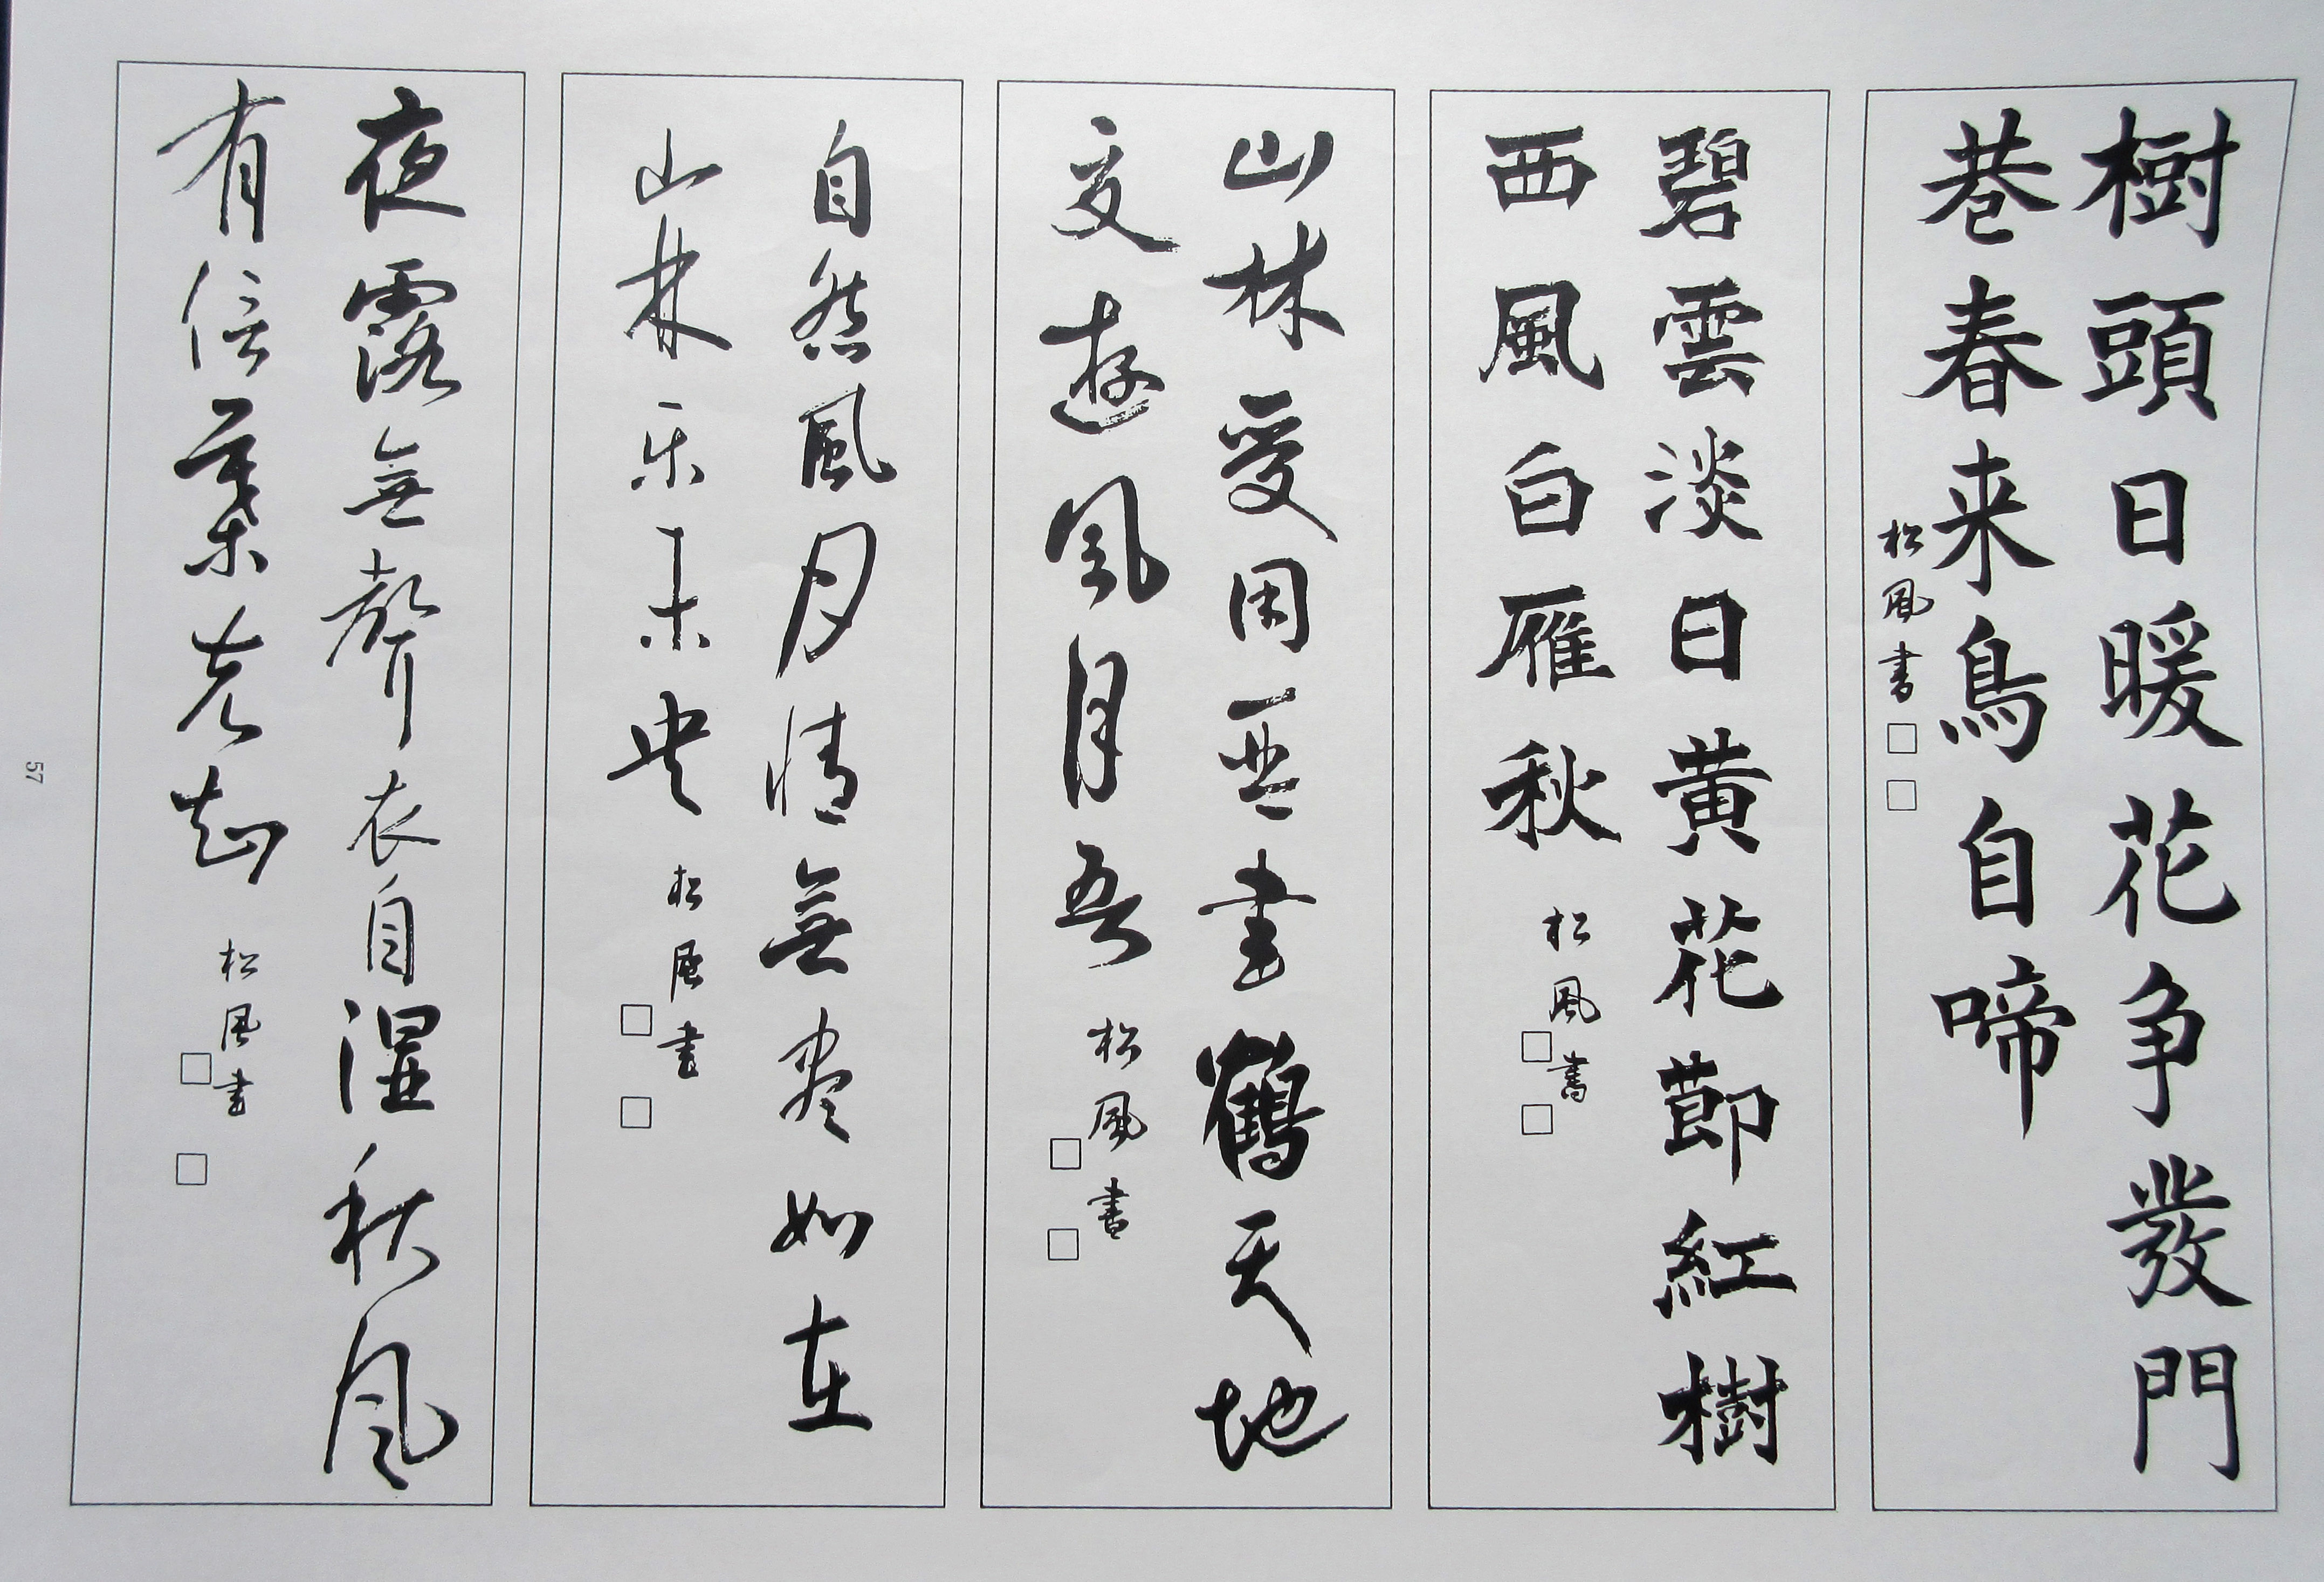 樹頭日暖花争發門
巷春来鳥自啼
松風書
碧雲淡日黄花莭紅樹
西風白雁秋
松風書
山林受用琴書鶴天地
交遊風月吾
松風書
自然風月情無盡如在
山林乐未央
松風書
夜露無聲衣自濕秋風
有信葉先知
松風書
57